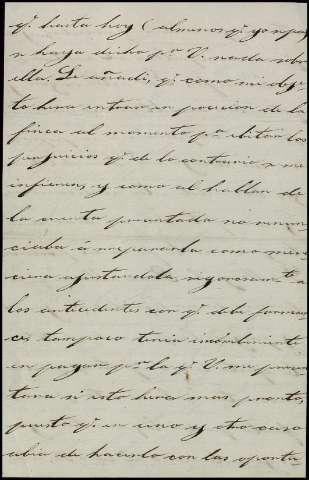 qᵉ. hasta hoy (al menos qᵉ. yo sepa)
se haya dicho pʳ. V. nada sobre
ella. Le añadi, qᵉ. como mi obje-
to hera entrar en posesion de la
finca al momento pᵃ. evitar los
perjuicios qᵉ. de lo contrario se me
infieren, y como al hablar de
la cuenta presentada no renun-
ciaba á repararla como mere-
ciera ajustandola rigorosamᵗᵉ. a
los antecedentes con qᵉ. debe formar-
ce; tampoco tenia inconbeniente
en pagar pʳ. la qᵉ. V. me presen-
tara si esto hera mas pronto,
puesto qᵉ. en uno y otro caso
abia de hacerlo con las oportu-